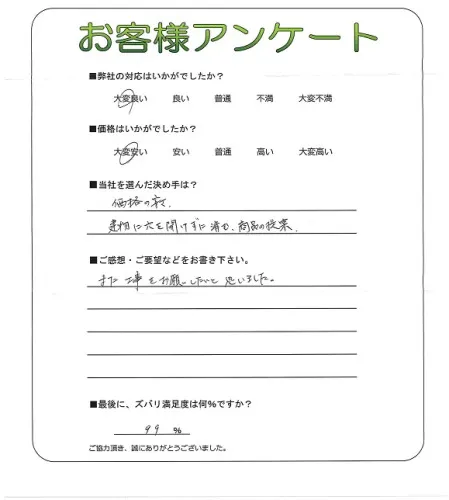 お客様アンケート
■弊社の対応はいかがでしたか？
大変良い 良い 普通 不満 大変不満
■価格はいかがでしたか？
大変安い 安い 普通 高い 大変高い
■当社を選んだ決め手は？
価格の安さ、
建物に穴を開けずに済む、商品の提案、
■ご感想・ご要望などをお書き下さい。
また工事をお願いしたいと思いました。
■最後に、ズバリ満足度は何%ですか？
99 %
ご協力頂き、誠にありがとうございました。